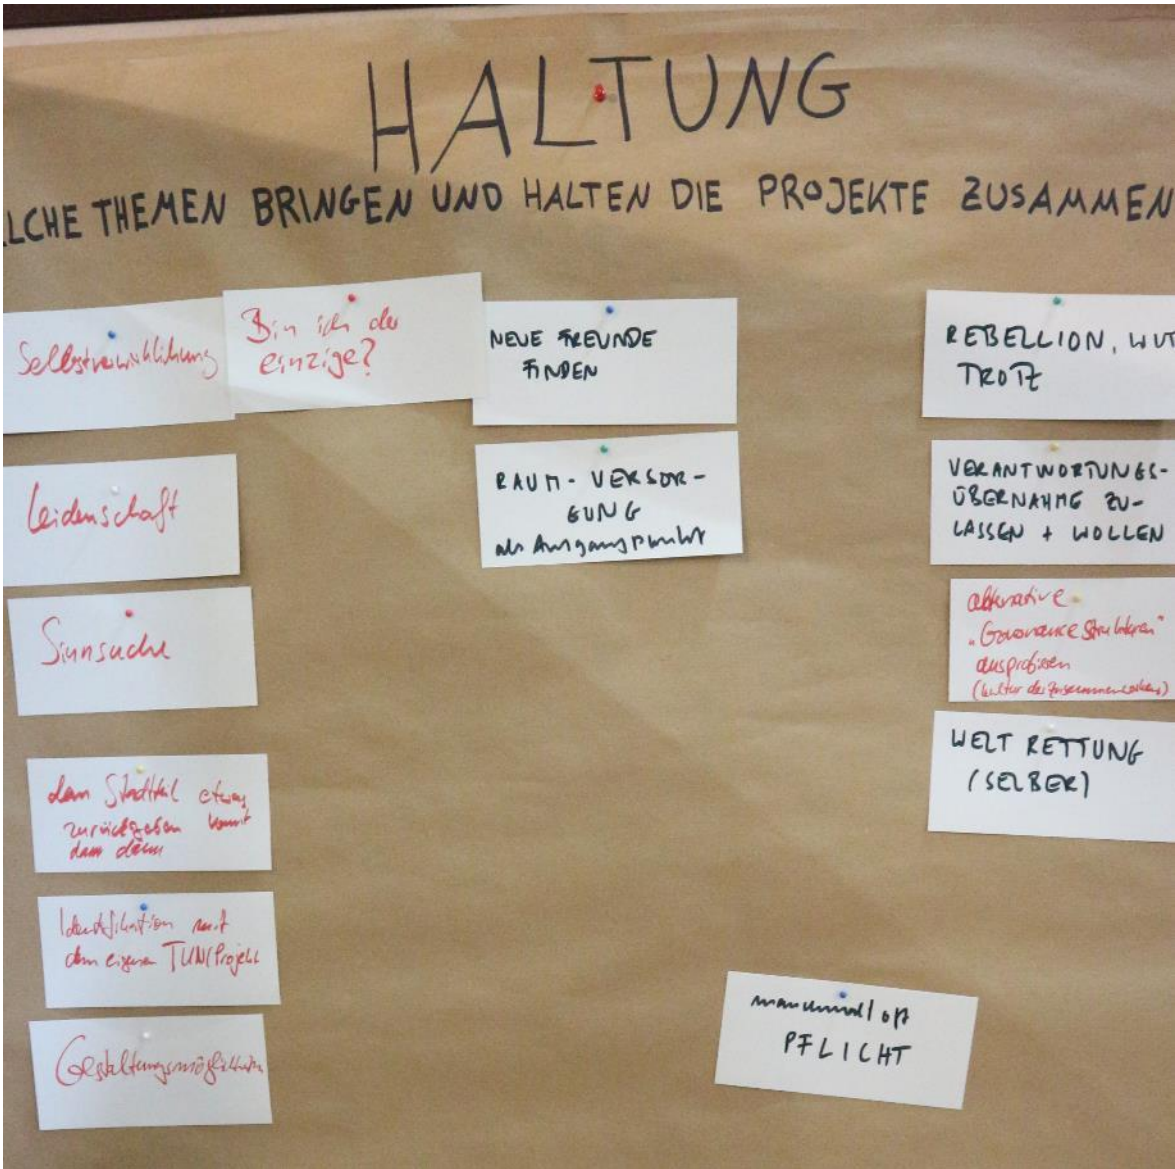 HALTUNG
LCHE THEMEN BRINGEN UND HALTEN DIE PROJEKTE ZUSAMMEN
Selbstverwirklichung
Leidenschaft
Sinnsuche
dem Stadtteil etwas
zurückgeben kommt
dann dann
Identifikation mit
dem eigenen TUN/Projekt
Gestaltungsmöglichkeiten
Bin ich der
einzige?
NEUE FREUNDE
FINDEN
RAUM-VERSOR-
GUNG
als Ausgangspunkt
manchmal/oft
PFLICHT
REBELLION, WUT
TROTZ
VERANTWORTUNGS-
ÜBERNAHME ZU-
LASSEN + WOLLEN
alternative
"Governance Strukturen"
ausprobieren
(Kultur des Zusammenarbeitens)
WELT RETTUNG
(SELBER)